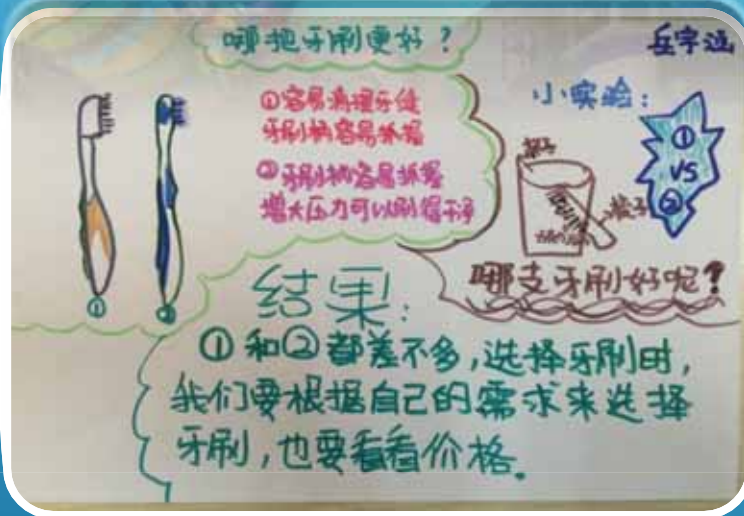 哪把牙刷更好？
岳宇涵
①容易清理牙缝
牙刷柄容易抓握
②牙刷柄容易抓握
增大压力可以刷得干净
小实验：
①
VS
②
杯子
哪支牙刷好呢？
①
②
结果：
①和②都差不多，选择牙刷时，
我们要根据自己的需求来选择
牙刷，也要看看价格。